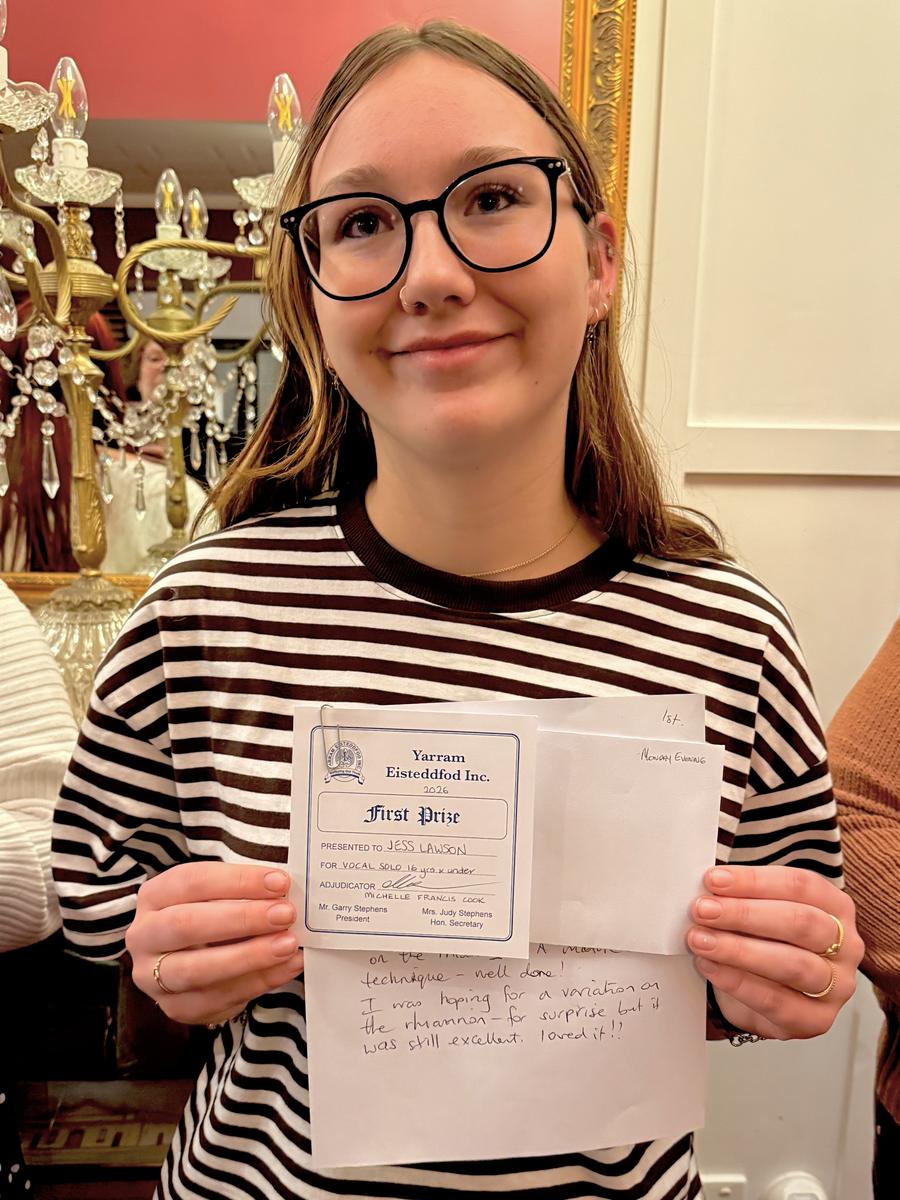 1st.
Monday Evening
Yarram
Eisteddfod Inc.
2026
First Prize
PRESENTED TO JESS LAWSON
FOR VOCAL SOLO 16 yrs & under
ADJUDICATOR
MICHELLE FRANCIS COOK
Mr. Garry Stephens
President
Mrs. Judy Stephens
Hon. Secretary
on the A
technique - well done!
I was hoping for a variation on
the rhiannon - for surprise but it
was still excellent. loved it!!